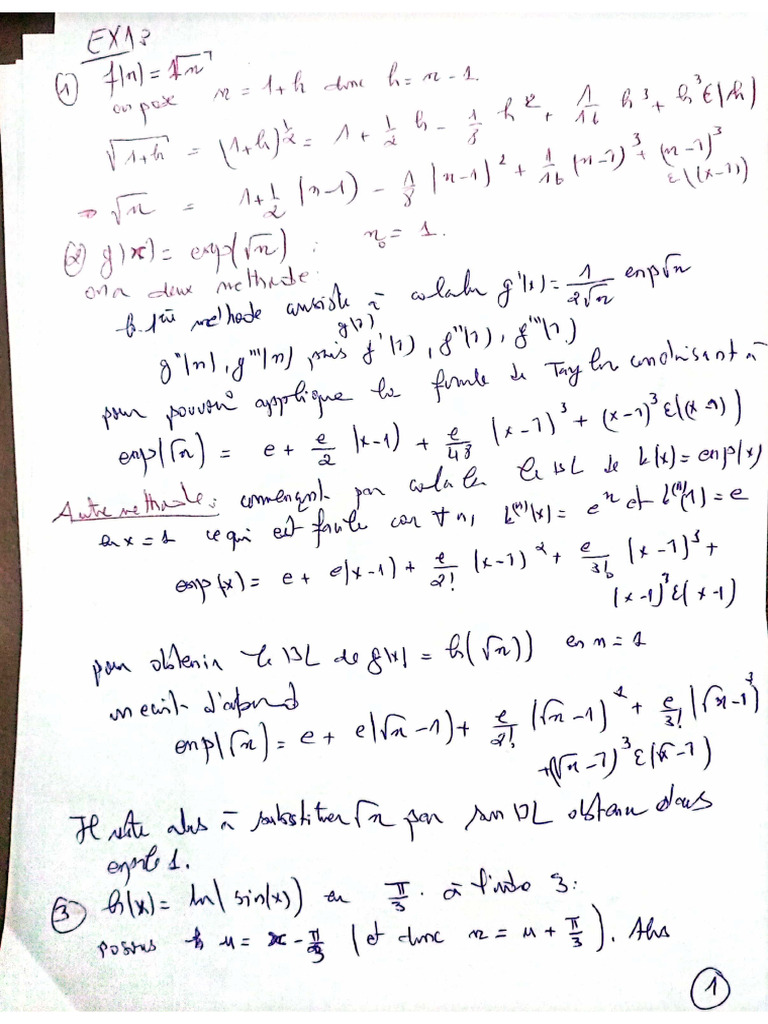 EX1:
① f(x) = √x
on pose x = 1+h donc h = x - 1.
√(1+h) = (1+h)^(1/2) = 1 + 1/2 h - 1/8 h² + 1/16 h³ + h³ ε(h)
⇒ √x = 1 + 1/2 (x-1) - 1/8 (x-1)² + 1/16 (x-1)³ + (x-1)³ ε((x-1))
② g(x) = exp(√x) ; x₀ = 1.
on a deux methode:
la 1ère methode consiste à calculer g'(x) = 1/(2√x) exp√x
g''(x), g'''(x) puis g(1) g'(1), g''(1), g'''(1)
pour pouvoir applique la formule de Taylor conduisant à
exp(√x) = e + e/2 (x-1) + e/48 (x-1)³ + (x-1)³ ε((x-1))
Autre methode: commençant par calculer le DL de k(x) = exp(x)
en x = 1 ce qui est facile car ∀n, k⁽ⁿ⁾(x) = eˣ et k⁽ⁿ⁾(1) = e
exp(x) = e + e(x-1) + e/2! (x-1)² + e/3! (x-1)³ +
(x-1)³ ε(x-1)
pour obtenir le DL de g(x) = h(√x)) en x = 1
on ecrit d'abord
exp(√x) = e + e(√x - 1) + e/2! (√x - 1)² + e/3! (√x - 1)³
+ (√x - 1)³ ε(√x - 1)
Il reste alors à substituer √x par son DL obtenu dans
1.
③ h(x) = ln(sin(x)) en π/3 . à l'ordre 3:
posons u = x - π/3 (et donc x = u + π/3). Alors
①